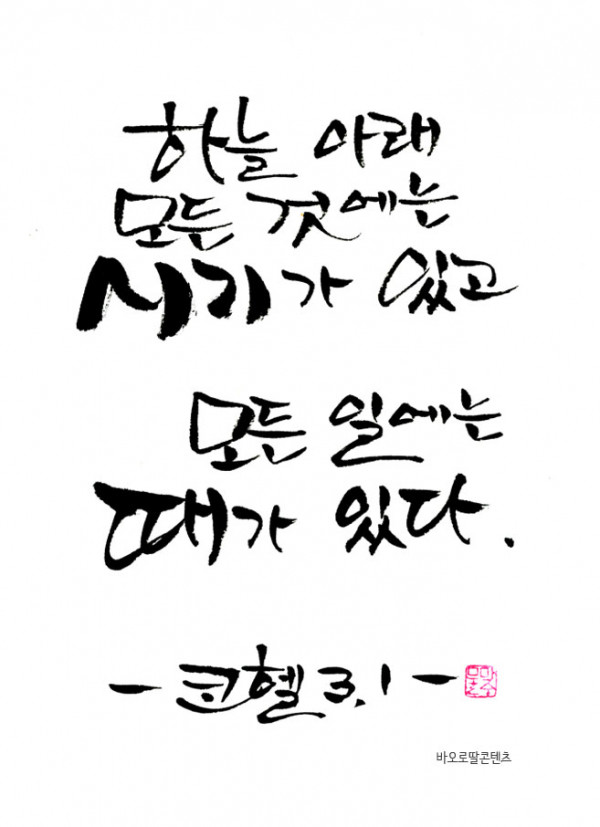 하늘 아래
모든 것에는
시기가 있고
모든 일에는
때가 있다.
- 코헬 3,1 -
바오로딸콘텐츠